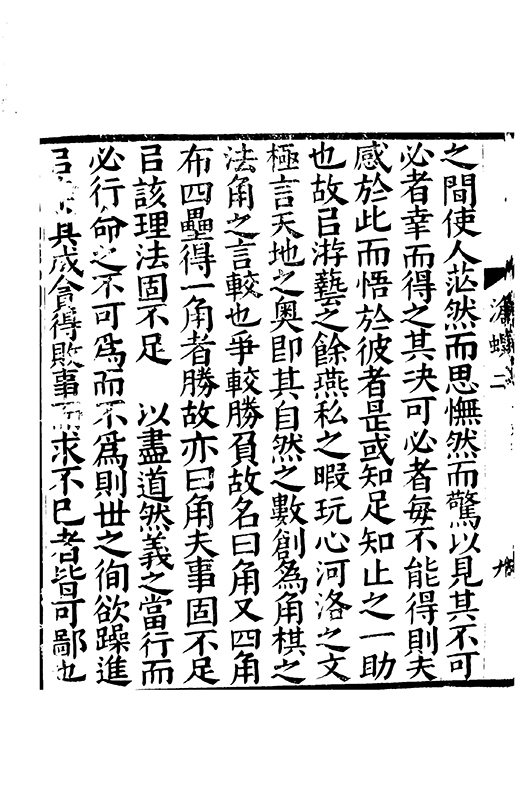 之間使人茫然而思憮然而驚以見其不可
必者幸而得之其决可必者每不能得則夫
感於此而悟於彼者是或知足知止之一助
也故㠯游藝之餘燕私之暇玩心河洛之文
極言天地之奥即其自然之數創為角棋之
法角之言較也爭較勝負故名曰角又四角
布四壘得一角者勝故亦曰角夫事固不足
㠯該理法固不足 以盡道然義之當行而
必行命之不可為而不為則世之徇欲躁進
具成 得敗事 求不已者皆可鄙也
二